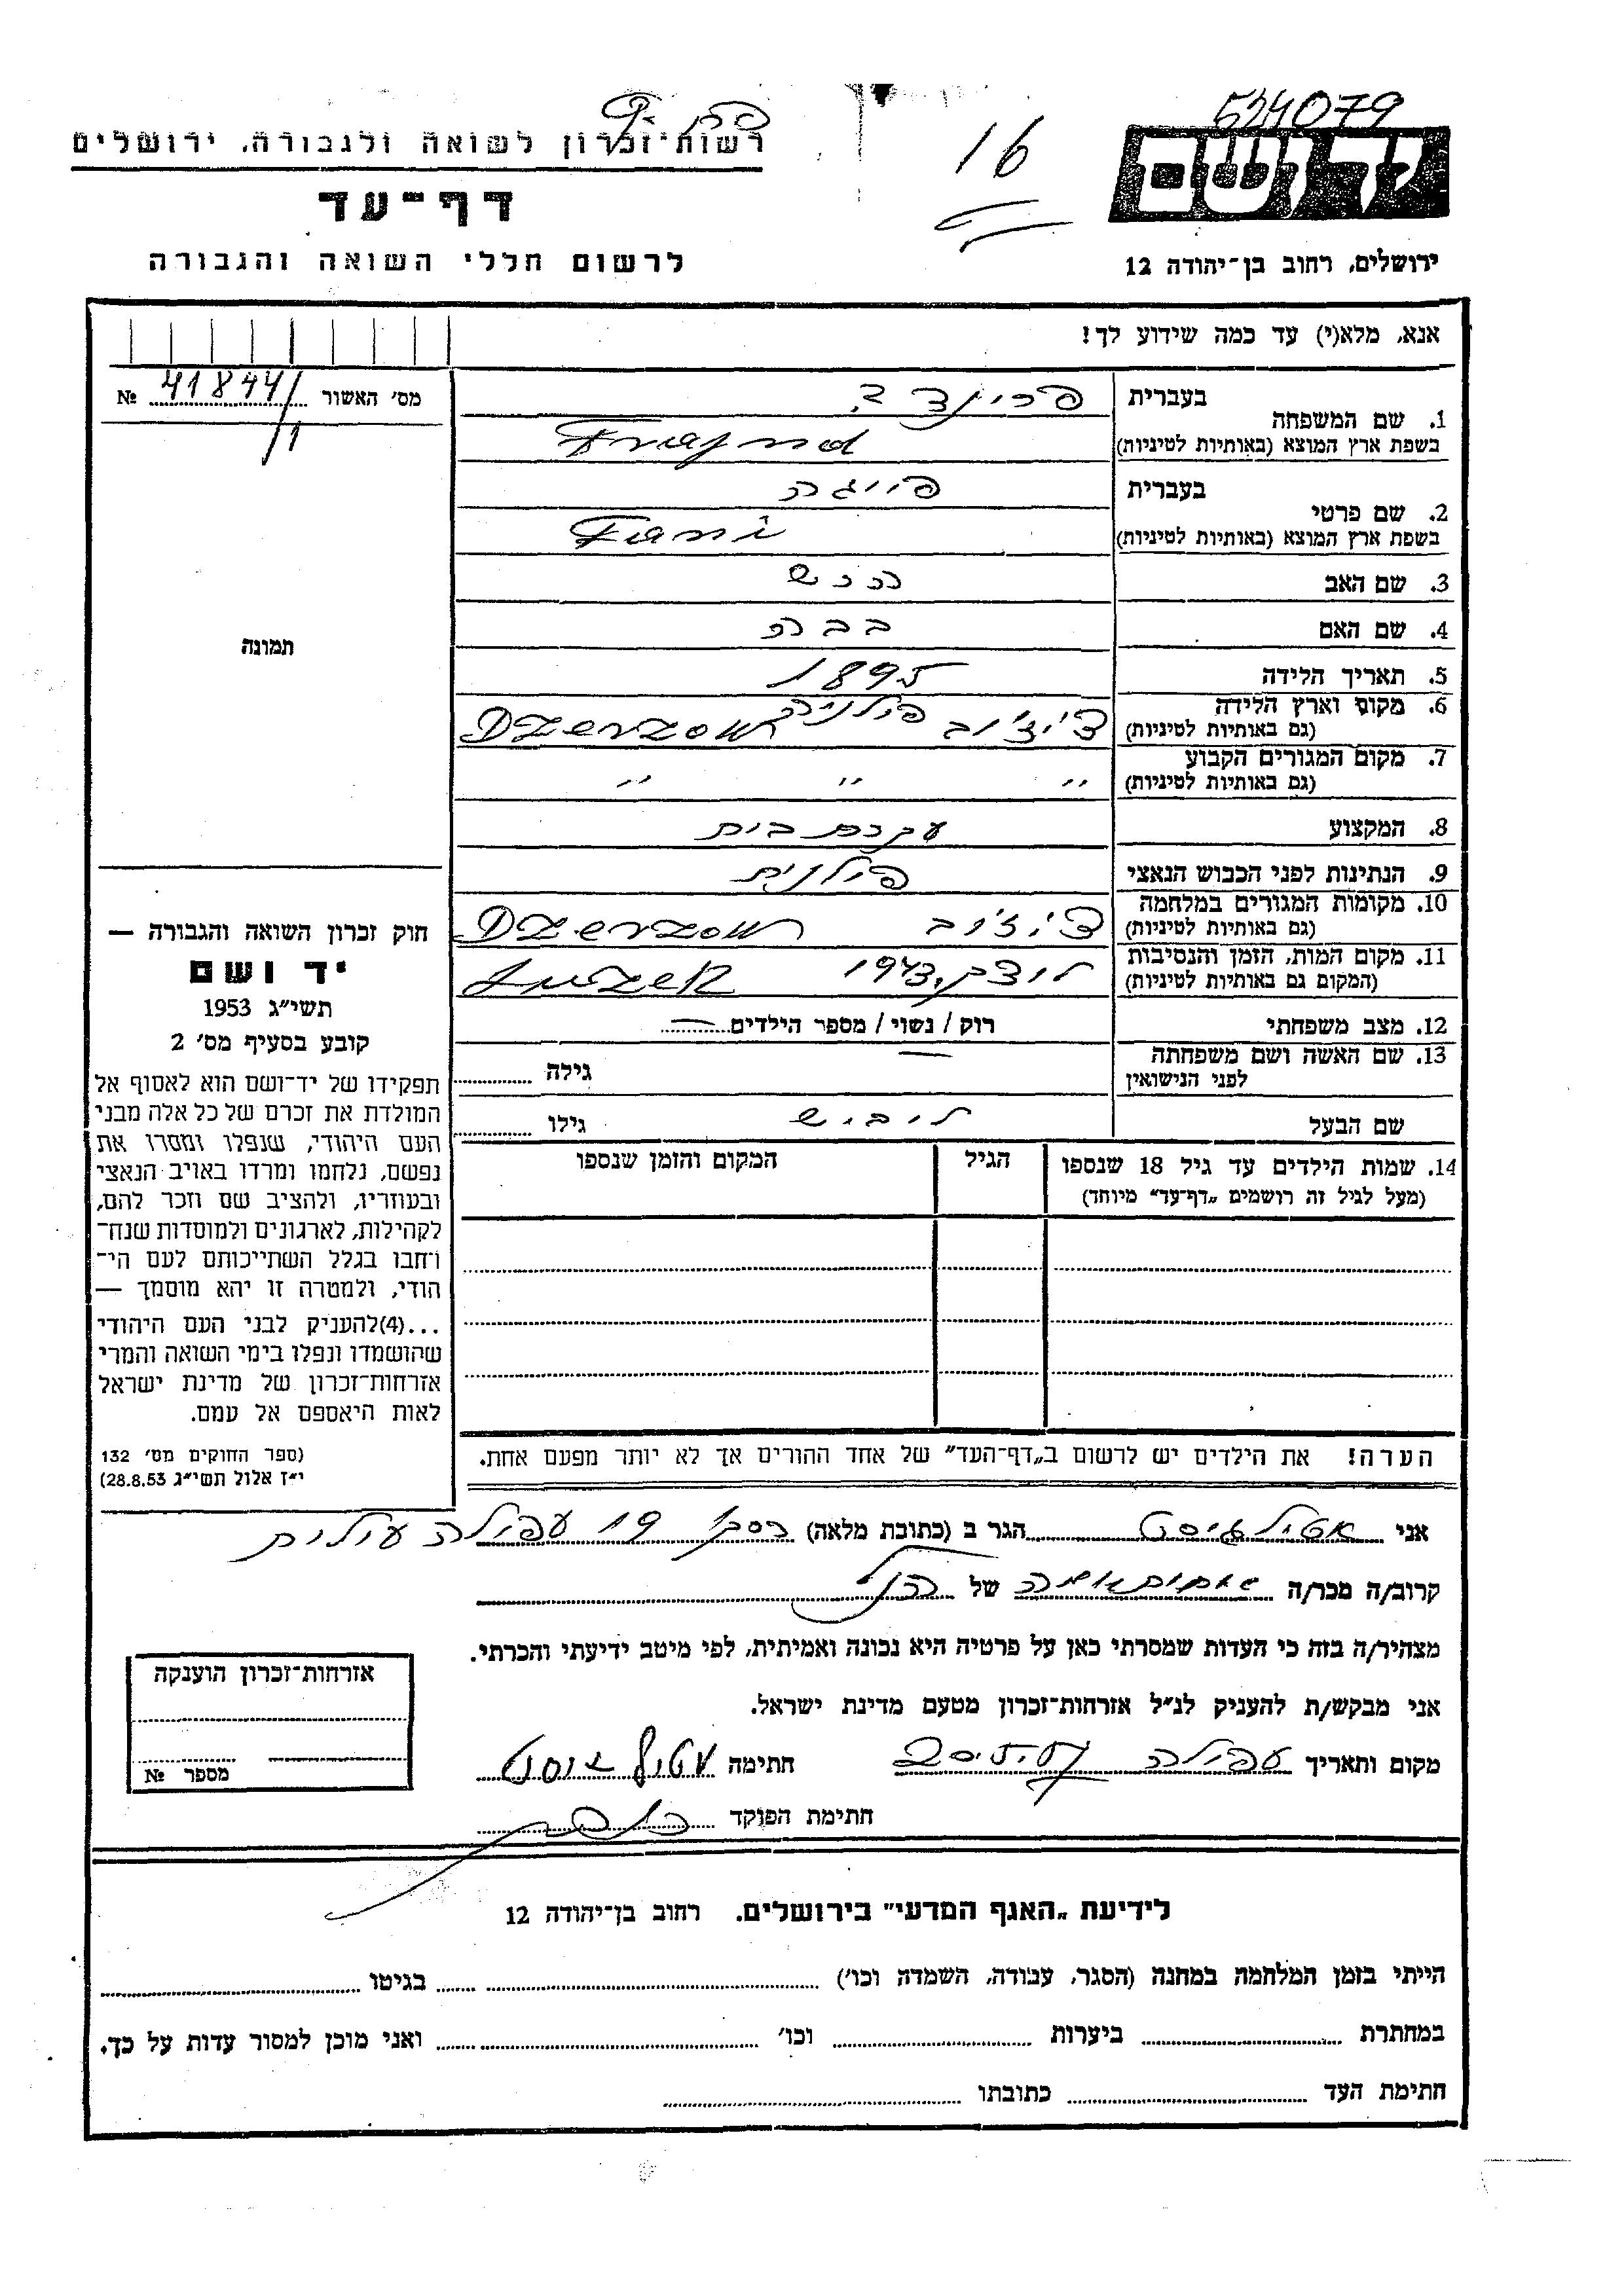 524079
16
ידושם
ירושלים, רחוב בן־יהודה 12
רשות־זכרון לשואה ולגבורה, ירושלים
דף־עד
לרשום חללי השואה והגבורה
אנא, מלא(י) עד כמה שידוע לך!
מס׳ האשור 41844/1 №
תמונה
1. שם המשפחה
בעברית פריינד
בשפת ארץ המוצא (באותיות לטיניות) Frajnd
2. שם פרטי
בעברית פייגה
בשפת ארץ המוצא (באותיות לטיניות) Fani
3. שם האב הרש
4. שם האם
5. תאריך הלידה 1895
6. מקום וארץ הלידה פולניה
(גם באותיות לטיניות) Dzerzow
7. מקום המגורים הקבוע
(גם באותיות לטיניות) ״ ״ ״
8. המקצוע עקרת בית
9. הנתינות לפני הכבוש הנאצי פולנית
10. מקומות המגורים במלחמה
(גם באותיות לטיניות) Dzerzow
11. מקום המות, הזמן והנסיבות 1943
(המקום גם באותיות לטיניות)
12. מצב משפחתי רוק / נשוי / מספר הילדים —
13. שם האשה ושם משפחתה — גילה
לפני הנישואין
שם הבעל לייביש גילו
14. שמות הילדים עד גיל 18 שנספו הגיל המקום והזמן שנספו
(מעל לגיל זה רושמים „דף־עד״ מיוחד)
הערה! את הילדים יש לרשום ב„דף־העד״ של אחד ההורים אך לא יותר מפעם אחת.
חוק זכרון השואה והגבורה —
יד ושם
תשי״ג 1953
קובע בסעיף מס׳ 2
תפקידו של יד־ושם הוא לאסוף אל
המולדת את זכרם של כל אלה מבני
העם היהודי, שנפלו ומסרו את
נפשם, נלחמו ומרדו באויב הנאצי
ובעוזריו, ולהציב שם וזכר להם,
לקהילות, לארגונים ולמוסדות שנח־
רבו בגלל השתייכותם לעם הי־
הודי, ולמטרה זו יהא מוסמך —
...(4)להעניק לבני העם היהודי
שהושמדו ונפלו בימי השואה והמרי
אזרחות־זכרון של מדינת ישראל
לאות היאספם אל עמם.
(ספר החוקים מס׳ 132
י״ז אלול תשי״ג 28.8.53)
אני הגר ב (כתובת מלאה) 19 עפולה עילית
קרוב/ה מכר/ה של הנ״ל
מצהיר/ה בזה כי העדות שמסרתי כאן על פרטיה היא נכונה ואמיתית, לפי מיטב ידיעתי והכרתי.
אני מבקש/ת להעניק לנ״ל אזרחות־זכרון מטעם מדינת ישראל.
מקום ותאריך עפולה 20.5.57 חתימה
חתימת הפוקד
אזרחות־זכרון הוענקה
מספר №
לידיעת „האגף המדעי״ בירושלים. רחוב בן־יהודה 12
הייתי בזמן המלחמה במחנה (הסגר, עבודה, השמדה וכו׳) בגיטו
במחתרת ביערות וכו׳ ואני מוכן למסור עדות על כך.
חתימת העד כתובתו